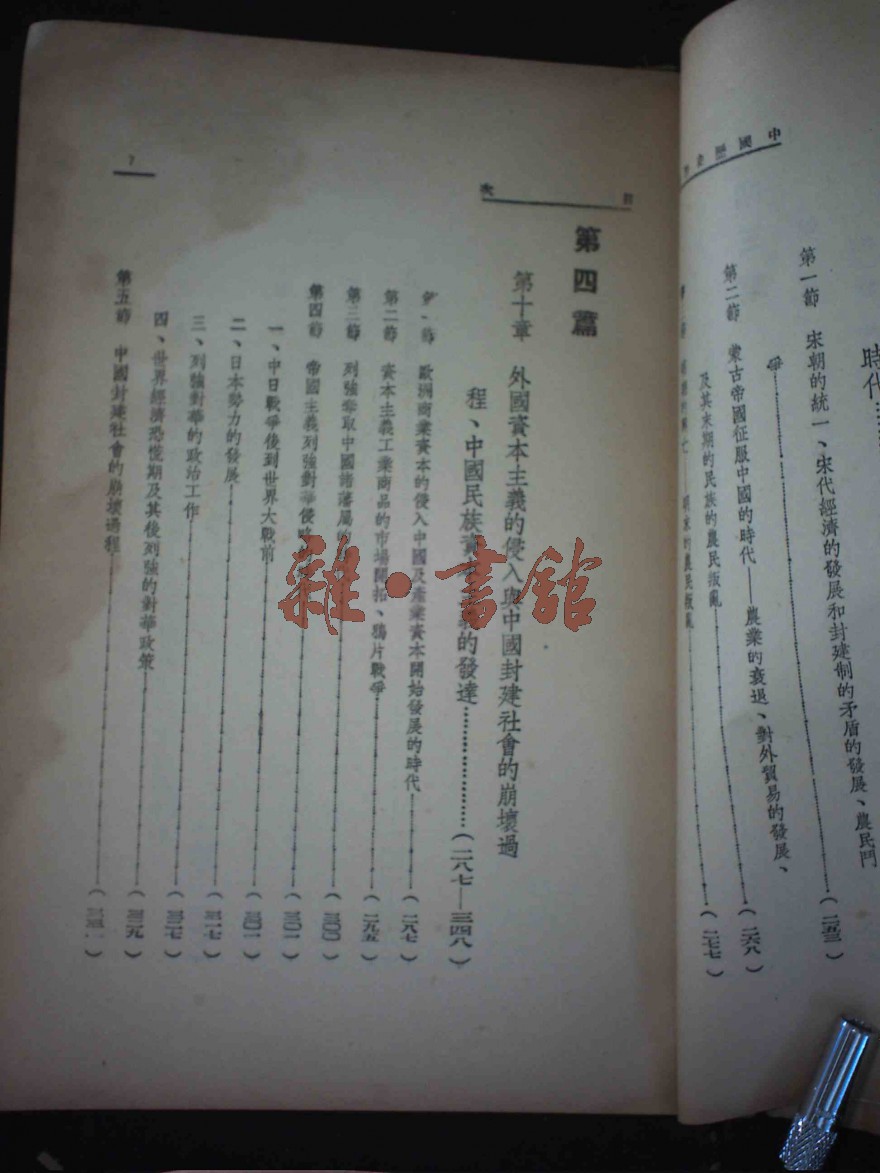 中國歷
時代
第一節 宋朝的統一、宋代經濟的發展和封建制的矛盾的發展、農民鬥
爭 (二五三)
第二節 蒙古帝國征服中國的時代——農業的衰退、對外貿易的發展、
及其末期的民族的農民叛亂 (二六八)
明末的農民叛亂 (二七七)
目 次
第四篇
第十章 外國資本主義的侵入與中國封建社會的崩壞過
程、中國民族資 的發達 (二八七—三四八)
節 歐洲商業資本的侵入中國及產業資本開始發展的時代 (二八七)
第二節 資本主義工業商品的市場開拓、鴉片戰爭 (二九五)
第三節 列強奪取中國諸藩屬的 (三〇〇)
第四節 帝國主義列強對華侵略 (三〇一)
一、中日戰爭後到世界大戰前 (三〇一)
二、日本勢力的發展 (三一七)
三、列強對華的政治工作 (三二七)
四、世界經濟恐慌期及其後列強的對華政策 (三二九)
第五節 中國封建社會的崩壞過程
7
雜·書館